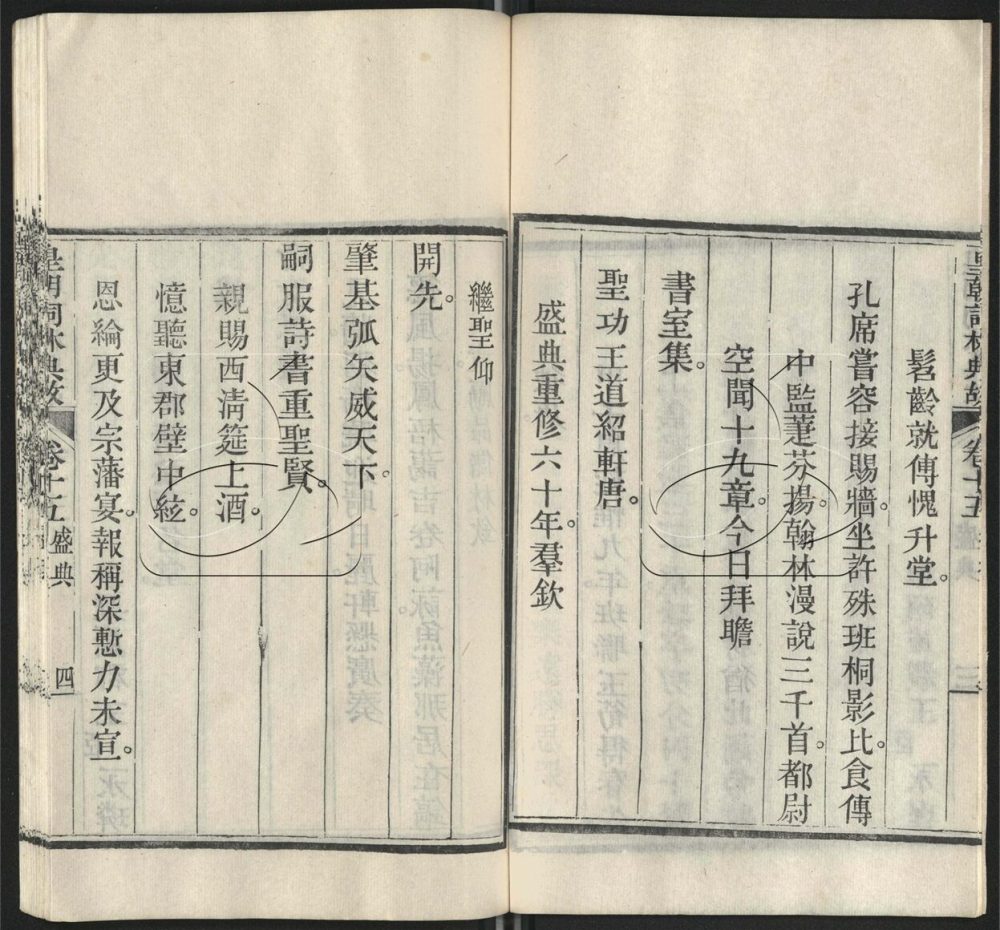 皇朝詞林典故 卷十五 盛典 三
髫齡就傅愧升堂。
孔席嘗容接賜牆。坐許殊班桐影比。食傳
中監蓮芬揚。翰林漫說三千首。都尉
空聞十九章。今日拜瞻
書室集。
聖功王道紹軒唐。
盛典重修六十年。羣欽
繼聖仰
開先。
肇基弧矢威天下。
嗣服詩書重聖賢。
親賜西清筵上酒。
憶聽東郡壁中絃。
恩綸更及宗藩宴。報稱深慙力未宣。
皇朝詞林典故 卷十五 盛典 四